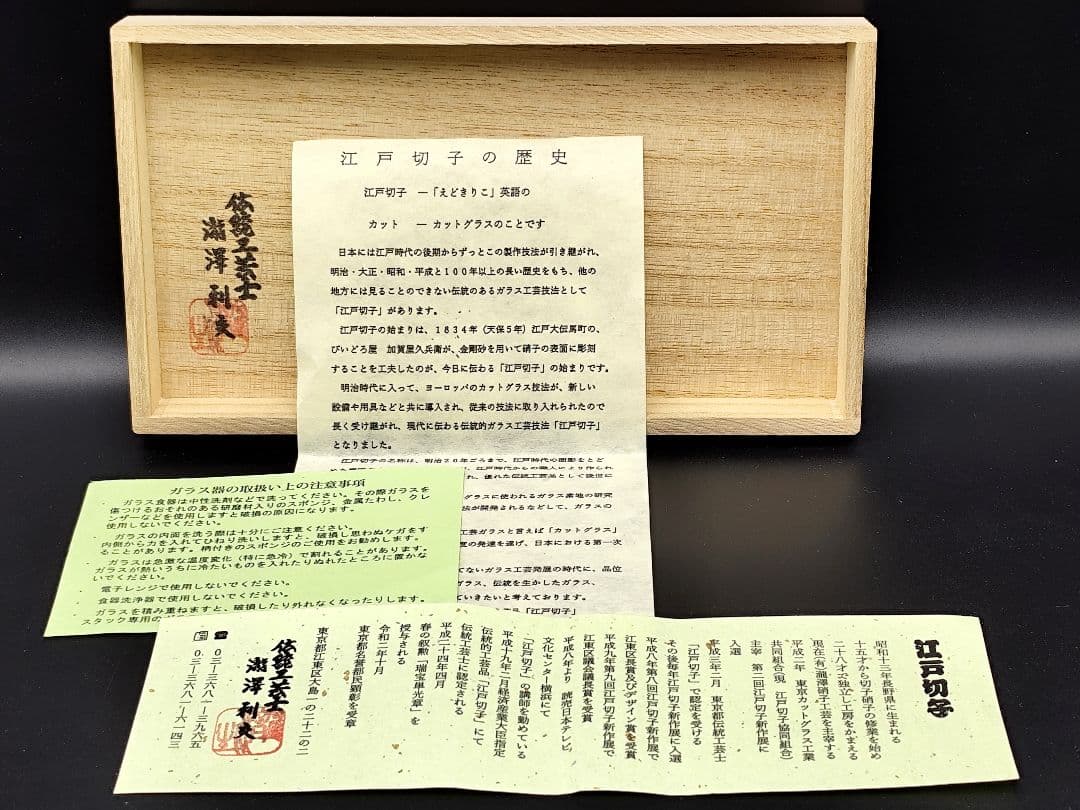 伝統工芸士
瀧澤利夫
江戸切子の歴史
江戸切子 ―「えどきりこ」英語の
カット ― カットグラスのことです
日本には江戸時代の後期からずっとこの製作技法が引き継がれ、
明治・大正・昭和・平成と100年以上の長い歴史をもち、他の
地方には見ることのできない伝統のあるガラス工芸技法として
「江戸切子」があります。
江戸切子の始まりは、1834年(天保5年)江戸大伝馬町の、
びいどろ屋 加賀屋久兵衛が、金剛砂を用いて硝子の表面に彫刻
することを工夫したのが、今日に伝わる「江戸切子」の始まりです。
明治時代に入って、ヨーロッパのカットグラス技法が、新しい
設備や用具などと共に導入され、従来の技法に取り入れられたので
長く受け継がれ、現代に伝わる伝統的ガラス工芸技法「江戸切子」
となりました。
江戸切子の名称は、明治20年ごろまで、江戸時代の面影をとど
、江戸時代からの職人により作られ
れ、優れた伝統工芸品として後世に
グラスに使われるガラス素地の研究
法が開発されるなどして、ガラスの
工芸ガラスと言えば「カットグラス」
度の発達を遂げ、日本における第一次
てないガラス工芸発展の時代に、品位
ガラス、伝統を生かしたガラス、
いきたいと考えております。
「江戸切子」
ガラス器の取扱い上の注意事項
・ガラス食器は中性洗剤などで洗ってください。その際ガラスを
傷つけるおそれのある研磨材入りのスポンジ、金属たわし、クレ
ンザーなどを使用しますと破損の原因になります。
使用しないでください。
・ガラスの内面を洗う際は十分にご注意ください。
内側から力を入れてひねり洗いしますと、破損し思わぬケガをす
ることがあります。柄付きのスポンジのご使用をお勧めします。
・ガラスは急激な温度変化(特に急冷)で割れることがあります。
ガラスが熱いうちに冷たいものを入れたりぬれたところに置かな
いでください。
・電子レンジで使用しないでください。
・食器洗浄器で使用しないでください。
・ガラスを積み重ねますと、破損したり外れなくなったりします。
スタック専用の
江戸切子
昭和十三年長野県に生まれる
十五才から切子硝子の修業を始め
二十八才で独立し工房をかまえる
現在(有)瀧澤硝子工芸を主宰する
平成二年 東京カットグラス工業
共同組合(現 江戸切子協同組合)
主宰 第二回江戸切子新作展に
入選
平成三年二月 東京都伝統工芸士
「江戸切子」で認定を受ける
その後毎年江戸切子新作展に入選
平成八年第八回江戸切子新作展で
江東区長賞及びデザイン賞を受賞
平成九年第九回江戸切子新作展で
江東区議会議長賞を受賞
平成八年より 読売日本テレビ
文化センター横浜にて
「江戸切子」の講師を勤めている
平成十九年二月経済産業大臣指定
伝統的工芸品「江戸切子」にて
伝統工芸士に認定される
平成二十四年四月
春の叙勲「瑞宝単光章」を
授与される
令和二年十月
東京都名誉都民顕彰を受章
東京都江東区大島一の二十二の二
伝統工芸士
瀧澤利夫
〇三―三六八一―三九六五
〇三―三六八一―六一四三